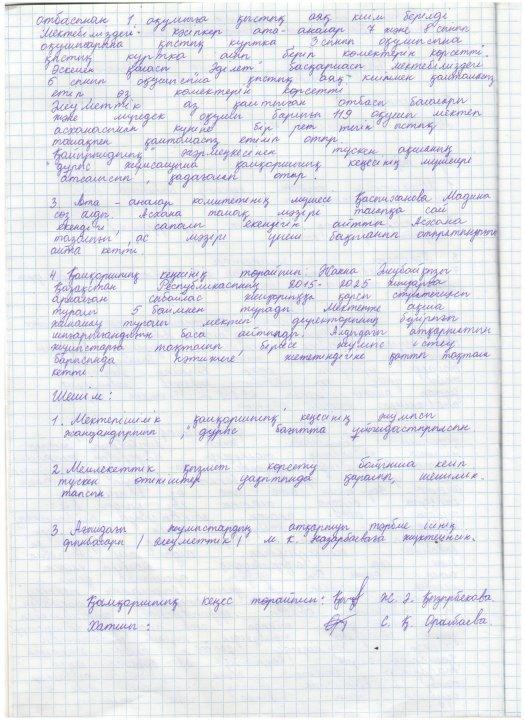 отбасынан 1 оқушыға қыстық аяқ киім берілді
Мектебіміздегі кәсіпкер ата-аналар 7 және 8 сынып
оқушыларына қыстық куртка 3 сынып оқушысына
қыстық куртка алып беріп көмектерін көрсетті.
Өскемен қаласы, Әділет басқармасы мектебіміздегі
5 сынып оқушысына қыстық аяқ киіммен қамтамасыз
етіп өз көмектерін көрсетті
Әлеуметтік аз қамтылған отбасы балалары
және мүгедек оқушы барлығы 119 оқушы мектеп
асханасынан күніне бір рет тегін ыстық
тамақпен қамтамасыз етіліп отыр.
Қайырымдылық жәрмеңкесінен түскен ақшаның
дұрыс жұмсалуына қамқоршылық кеңесінің мүшелері
атсалысып, қадағалап отыр.
3. Ата-аналар комитетінің мүшесі Қаспиханова Мадина
сөз алды. Асхана тамақ мәзірі талапқа сай
екендігі, сапалы екендігін айтты. Асхана
тазалығы, ас мәзірі үнемі бақыланып отыратындығын
айта кетті.
4. Қамқоршылық кеңесінің төрайымы Жанна
Қазақстан Республикасының 2015-2025 жылдарға
арналған сыбайлас жемқорлыққа қарсы стратегиясы
туралы 5 бөлімнен тұрады Мектепте ақша
жинамау туралы мектеп директорының бұйрығы
шығарылғандығын баса айтылды. Алдағы атқарылатын
жұмыстарға тоқталып, бірлесе жұмыс істеу
барысында нәтижеге жететіндігіне қатты тоқтала
кетті
Шешім:
1. Мектепішілік қамқоршылық кеңесінің жұмысы
жандандырылып, дұрыс бағытта ұйымдастырылсын
2. Мемлекеттік қызмет көрсету бойынша келіп
түскен өтініштер уақытында қаралып, шешімін
тапсын
3. Алдағы жұмыстардың атқарылуы тәрбие ісінің
орынбасары /әлеуметтік/ М. К. Назарбаеваға жүктелсін.
Қамқоршылық кеңес төрайымы: Ж. Ә.
Хатшы: С. Қ.